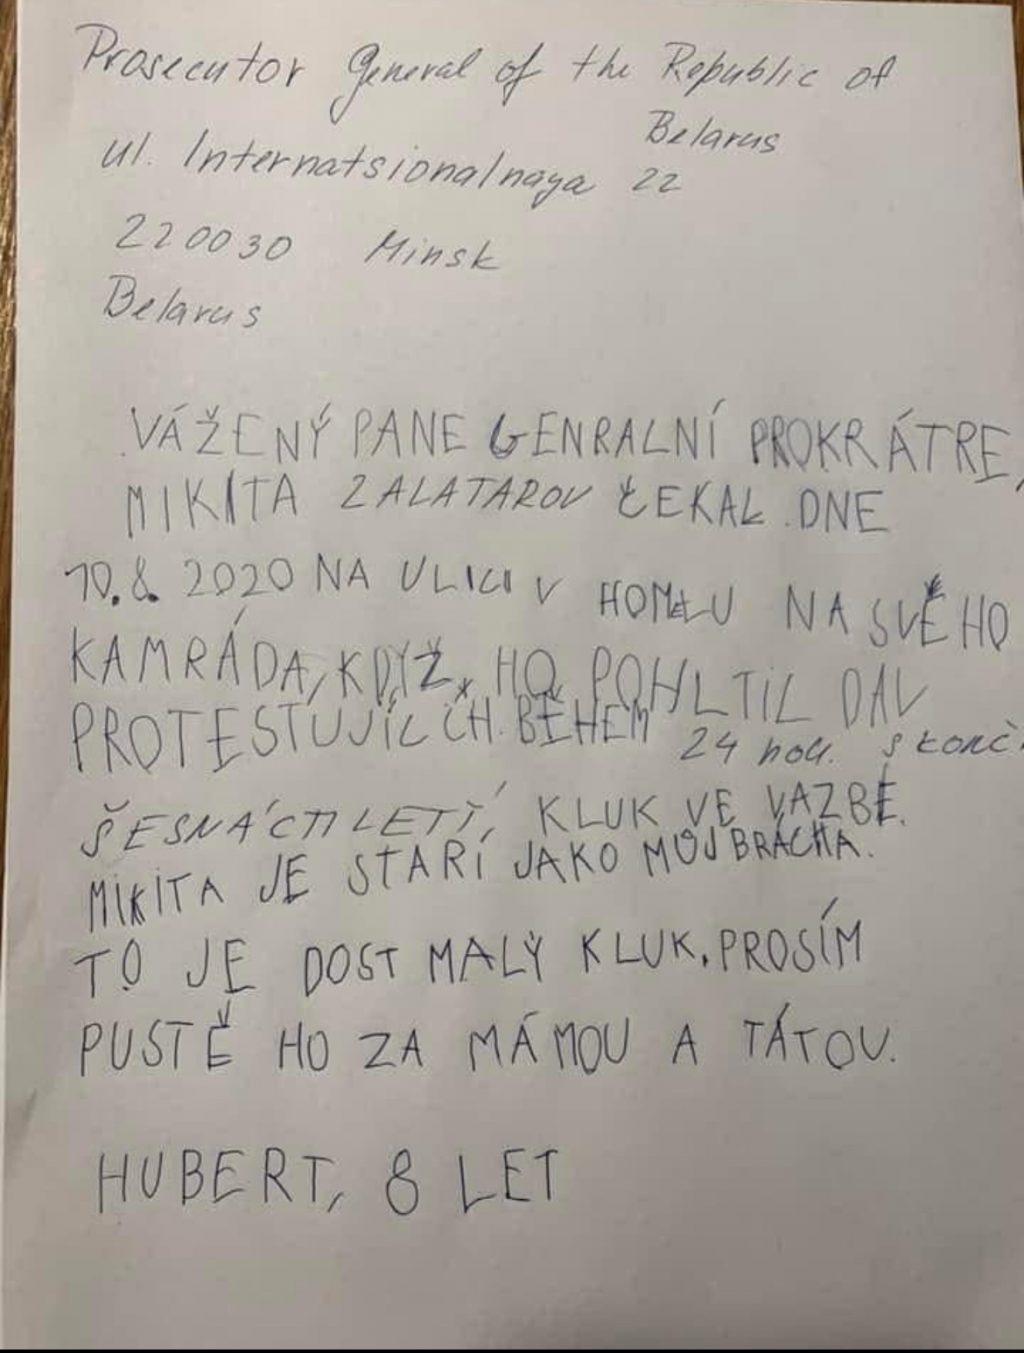 Prosecutor General of the Republic of
Belarus
ul. Internatsionalnaya 22
220030 Minsk
Belarus
VÁŽENÝ PANE GENRALNÍ PROKRÁTRE,
MIKITA ZALATAROV ČEKAL DNE
10.8. 2020 NA ULICI V HOMELU NA SVÉHO
KAMRÁDA, KDYŽ HO POHLTIL DAV
PROTESTUJÍCÍCH. BĚHEM 24 hod. skonč
ŠESNÁCTILETÍ, KLUK VE VAZBĚ.
MIKITA JE STARÍ JAKO MŮJ BRÁCHA.
TO JE DOST MALÝ KLUK. PROSÍM
PUSTĚ HO ZA MÁMOU A TÁTOU.
HUBERT, 8 LET